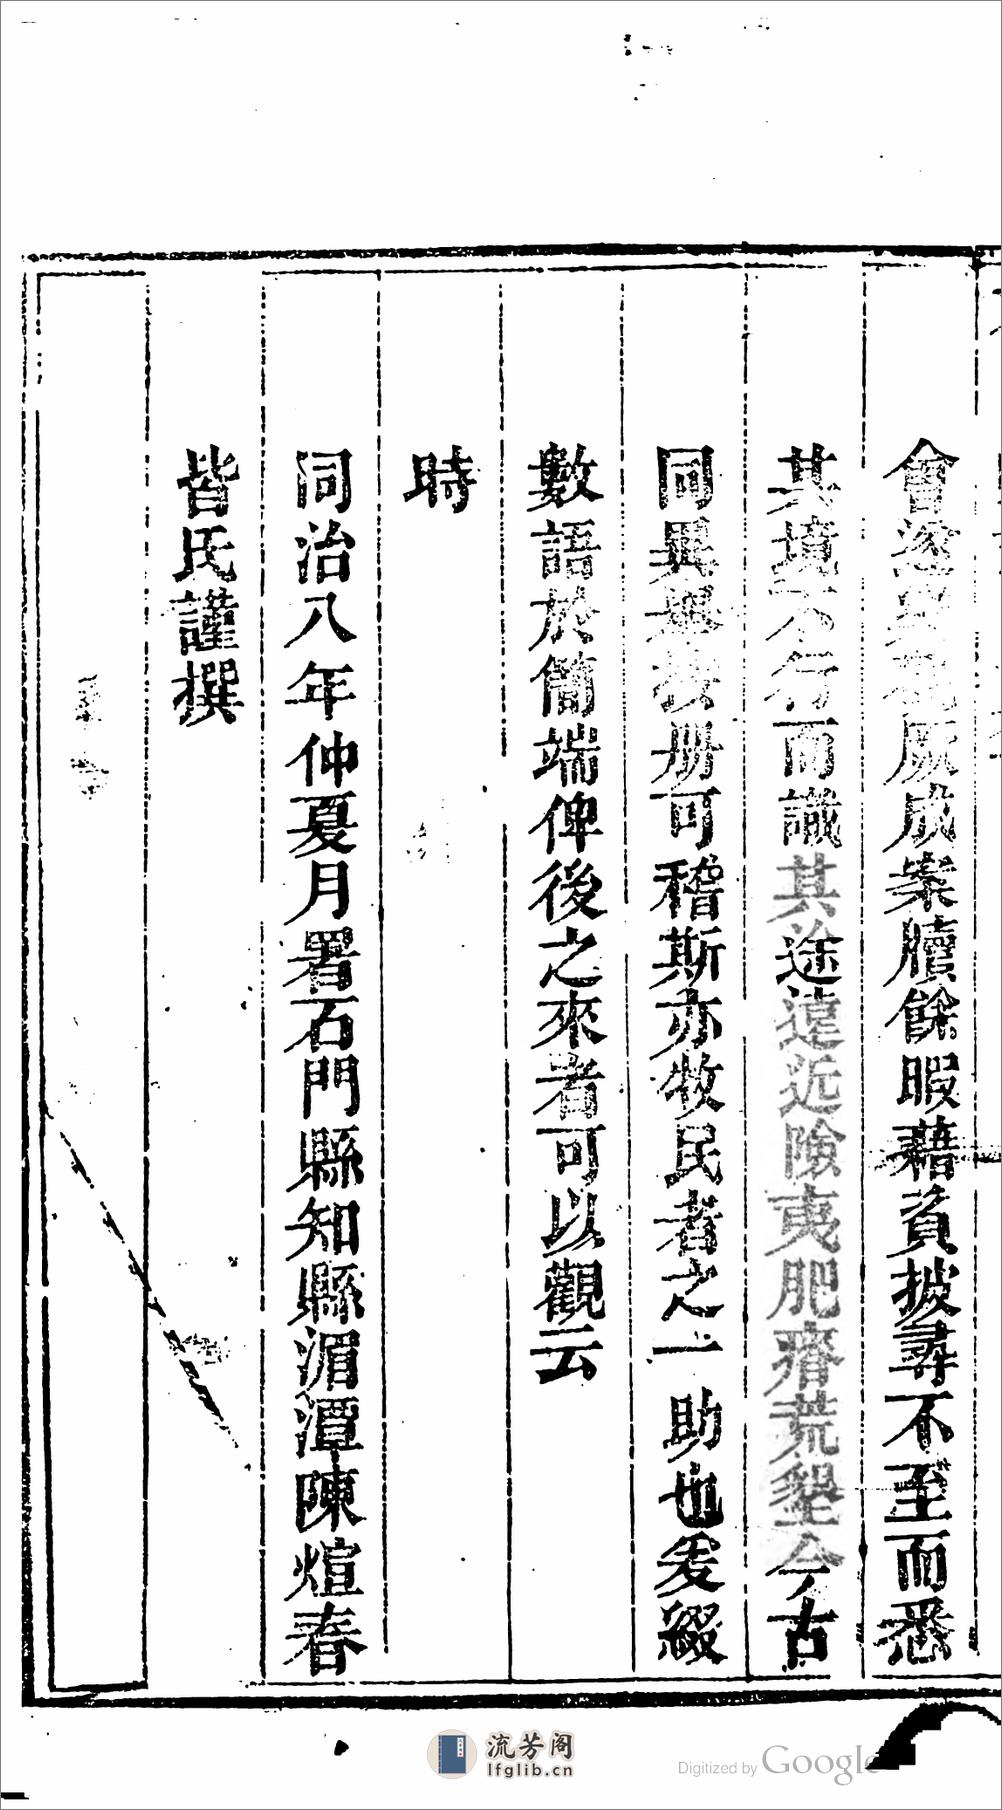 會逐
厥成案牘餘暇藉資披尋不至而悉
其境不行而識其途遠近險夷肥瘠荒墾今古
同異舉按册可稽斯亦牧民者之一助也爰綴
數語於簡端俾後之來者可以觀云
時
同治八年仲夏月署石門縣知縣湄潭陳煊春
皆氏謹撰
流芳阁
lfglib.cn
Digitized by Google